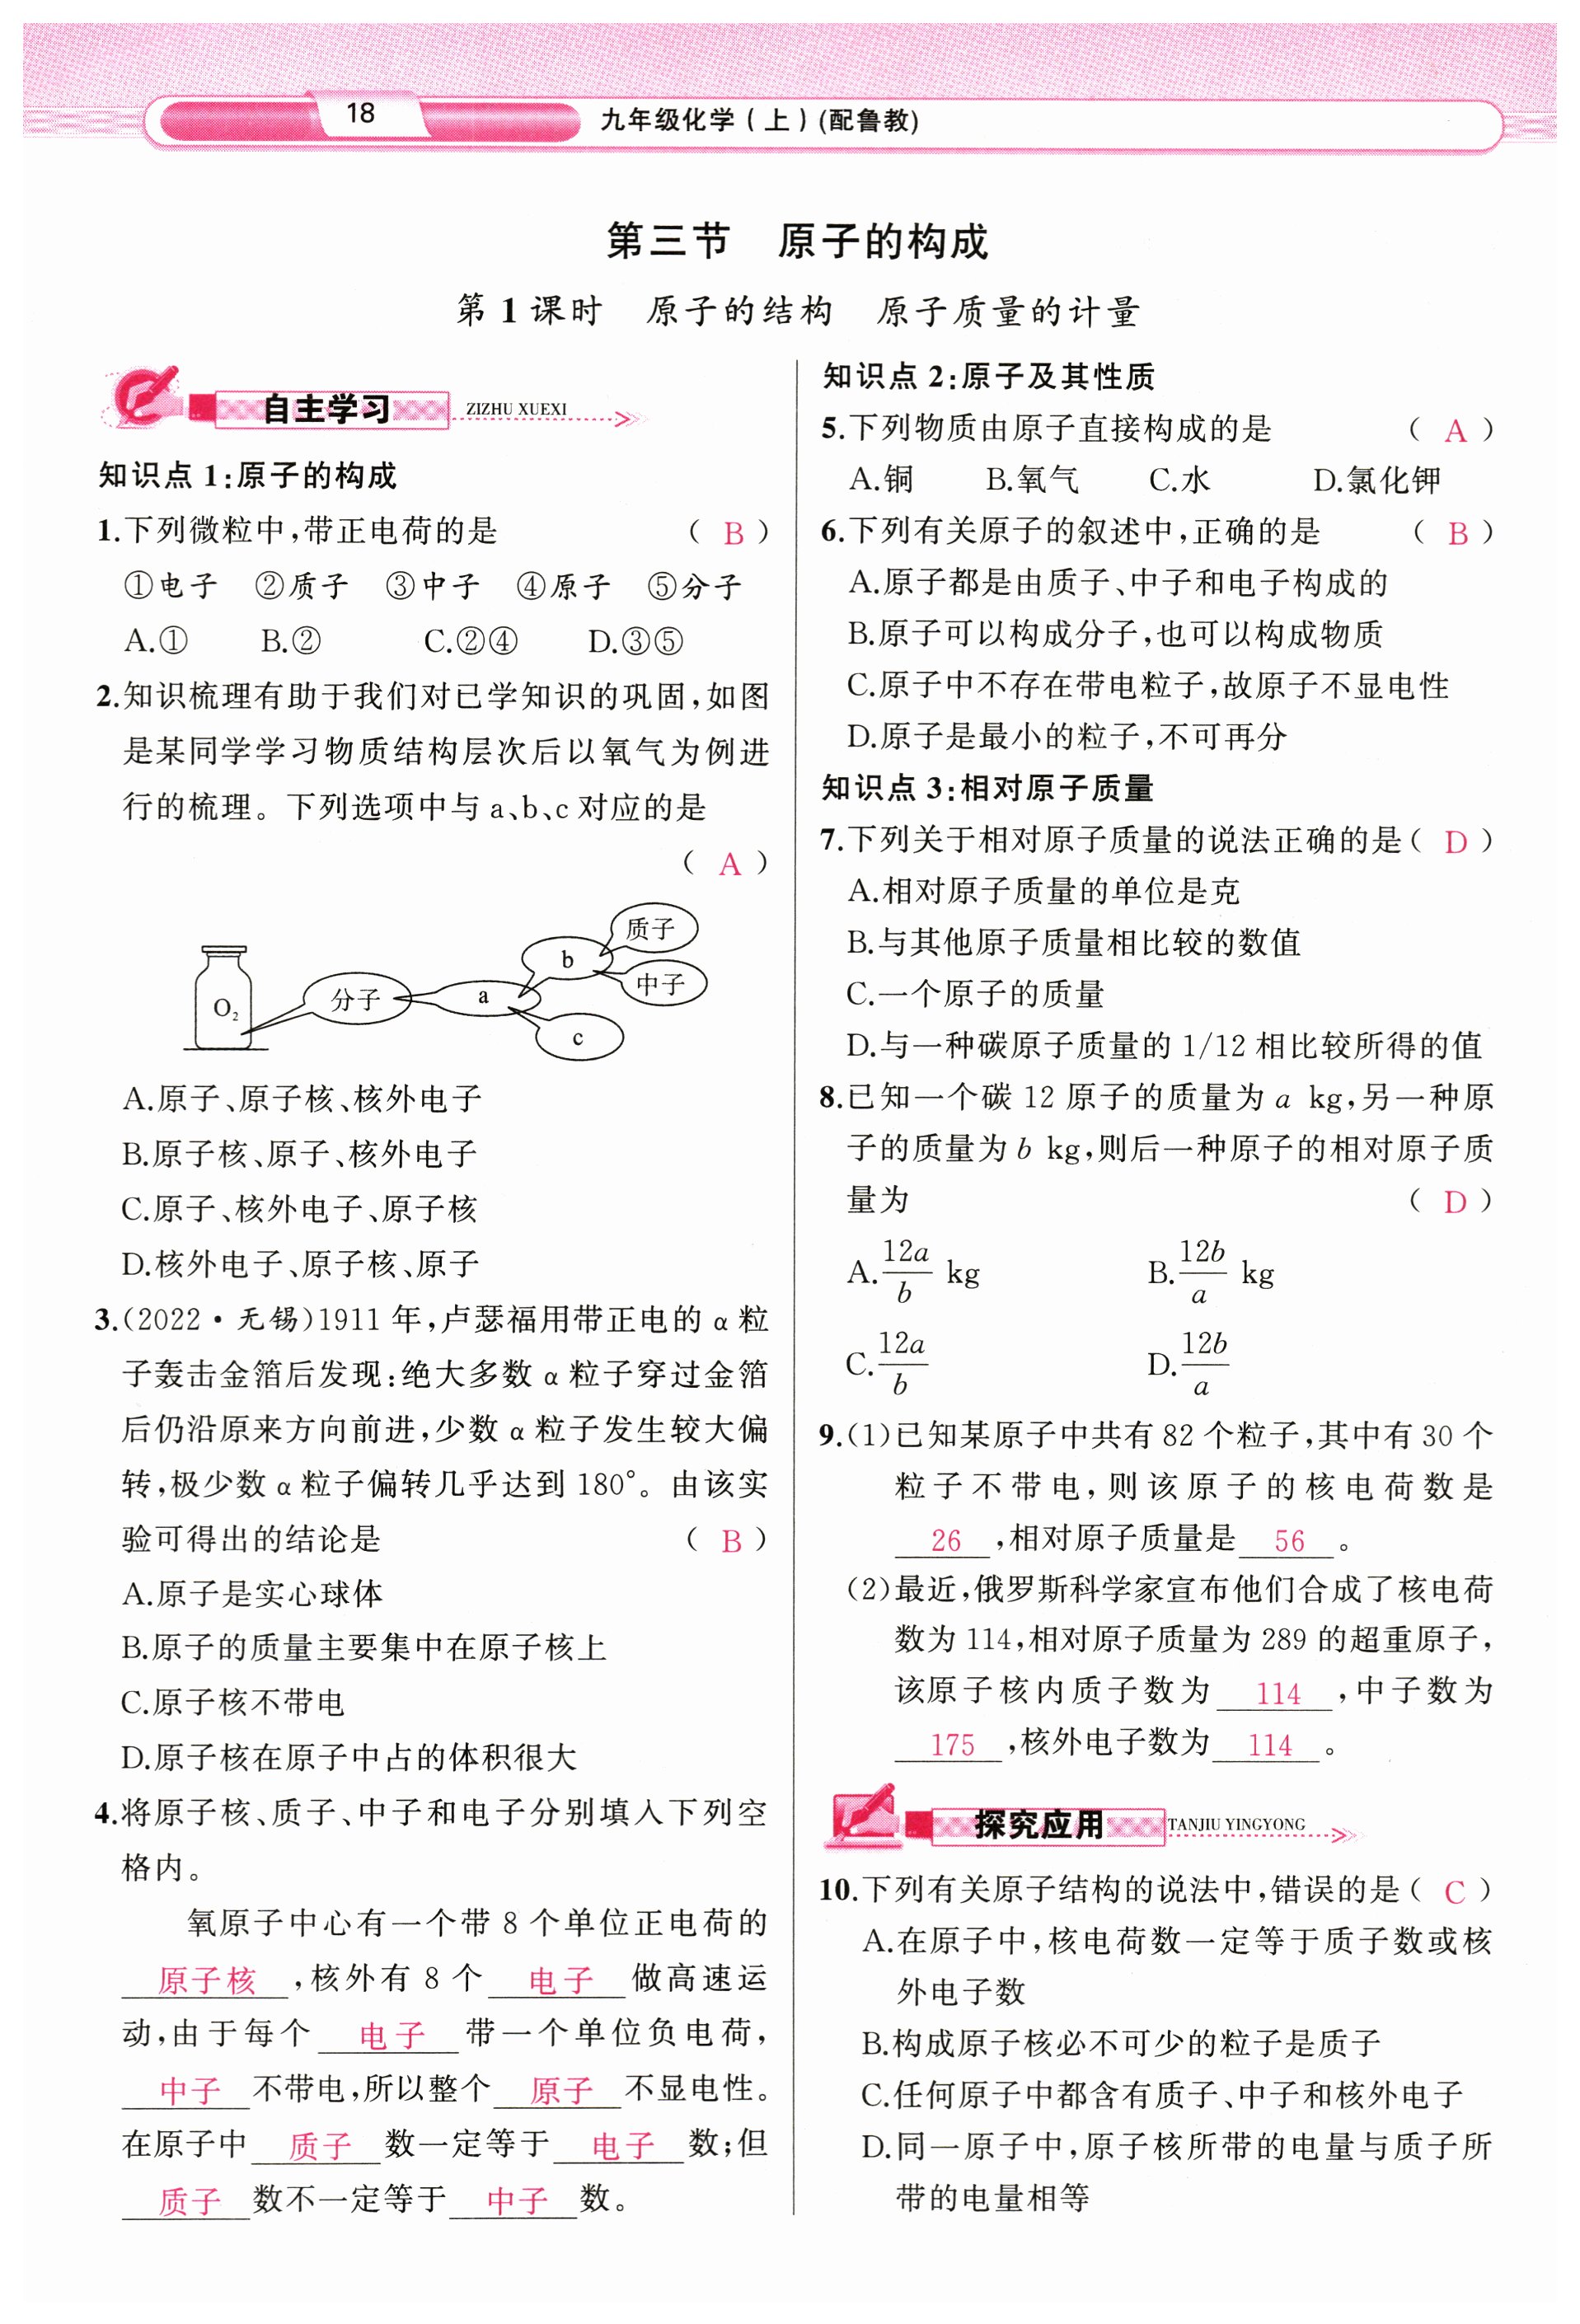 18
九年级化学(上)(配鲁教)
第三节 原子的构成
第1课时 原子的结构 原子质量的计量
自主学习 ZIZHU XUEXI
知识点1:原子的构成
1.下列微粒中,带正电荷的是 ( B )
①电子 ②质子 ③中子 ④原子 ⑤分子
A.① B.② C.②④ D.③⑤
2.知识梳理有助于我们对已学知识的巩固,如图
是某同学学习物质结构层次后以氧气为例进
行的梳理。下列选项中与a、b、c对应的是
( A )
O₂ 分子 a b 质子 中子 c
A.原子、原子核、核外电子
B.原子核、原子、核外电子
C.原子、核外电子、原子核
D.核外电子、原子核、原子
3.(2022·无锡)1911年,卢瑟福用带正电的α粒
子轰击金箔后发现:绝大多数α粒子穿过金箔
后仍沿原来方向前进,少数α粒子发生较大偏
转,极少数α粒子偏转几乎达到180°。由该实
验可得出的结论是 ( B )
A.原子是实心球体
B.原子的质量主要集中在原子核上
C.原子核不带电
D.原子核在原子中占的体积很大
4.将原子核、质子、中子和电子分别填入下列空
格内。
氧原子中心有一个带8个单位正电荷的
原子核,核外有8个 电子 做高速运
动,由于每个 电子 带一个单位负电荷,
中子 不带电,所以整个 原子 不显电性。
在原子中 质子 数一定等于 电子 数;但
质子 数不一定等于 中子 数。
知识点2:原子及其性质
5.下列物质由原子直接构成的是 ( A )
A.铜 B.氧气 C.水 D.氯化钾
6.下列有关原子的叙述中,正确的是 ( B )
A.原子都是由质子、中子和电子构成的
B.原子可以构成分子,也可以构成物质
C.原子中不存在带电粒子,故原子不显电性
D.原子是最小的粒子,不可再分
知识点3:相对原子质量
7.下列关于相对原子质量的说法正确的是( D )
A.相对原子质量的单位是克
B.与其他原子质量相比较的数值
C.一个原子的质量
D.与一种碳原子质量的1/12相比较所得的值
8.已知一个碳12原子的质量为a kg,另一种原
子的质量为b kg,则后一种原子的相对原子质
量为 ( D )
A.12a/b kg B.12b/a kg
C.12a/b D.12b/a
9.(1)已知某原子中共有82个粒子,其中有30个
粒子不带电,则该原子的核电荷数是
26 ,相对原子质量是 56 。
(2)最近,俄罗斯科学家宣布他们合成了核电荷
数为114,相对原子质量为289的超重原子,
该原子核内质子数为 114 ,中子数为
175 ,核外电子数为 114 。
探究应用 TANJIU YINGYONG
10.下列有关原子结构的说法中,错误的是( C )
A.在原子中,核电荷数一定等于质子数或核
外电子数
B.构成原子核必不可少的粒子是质子
C.任何原子中都含有质子、中子和核外电子
D.同一原子中,原子核所带的电量与质子所
带的电量相等